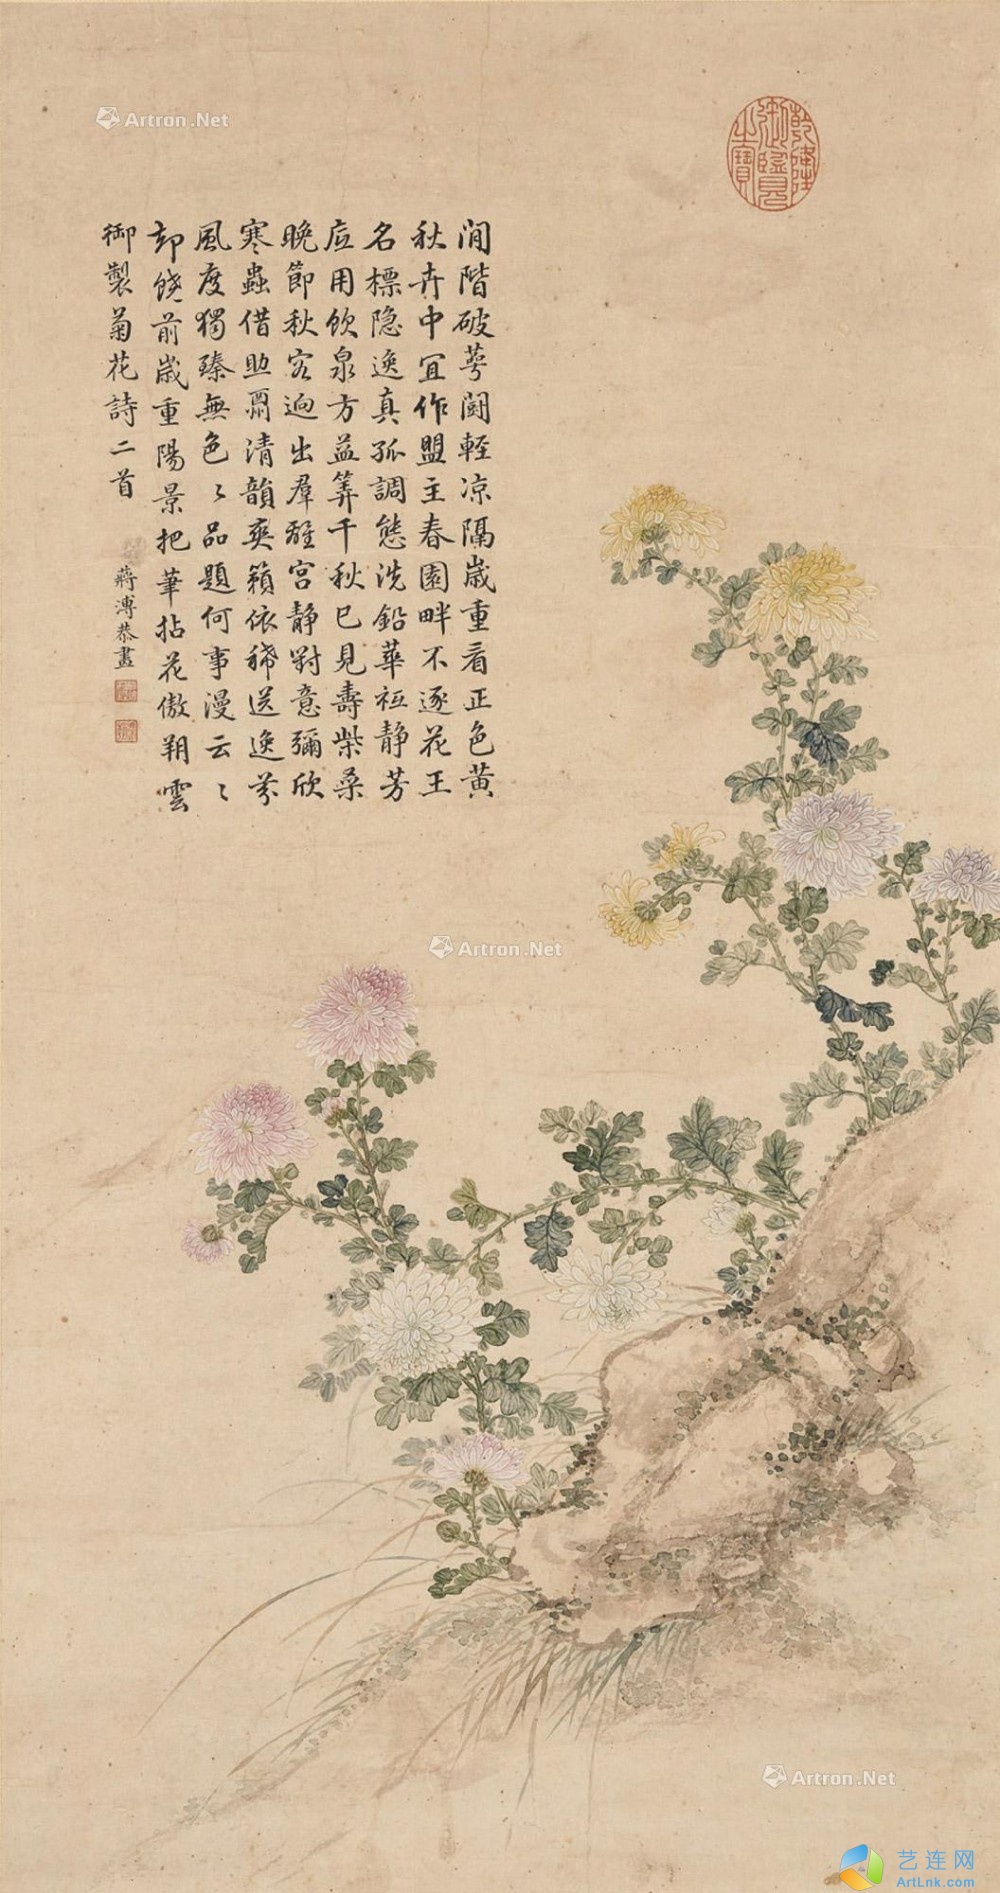 Artron.Net
乾隆御覽之寶
閒階破萼鬭輕涼隔歲重看正色黃
秋卉中宜作盟主春園畔不逐花王
名標隐逸真孤調態洗鉛華祗静芳
应用飲泉方益筭千秋已見壽柴桑
晚節秋容逈出羣離宮静對意彌欣
寒蟲借助爾清韻爽籟依稀送逸芬
風度獨臻無色〻品題何事漫云〻
却饒前歲重陽景把筆拈花傲朔雲
御製菊花詩二首
蔣溥恭畫
Artron.Net
Artron.Net
艺连网
ArtLnk.com